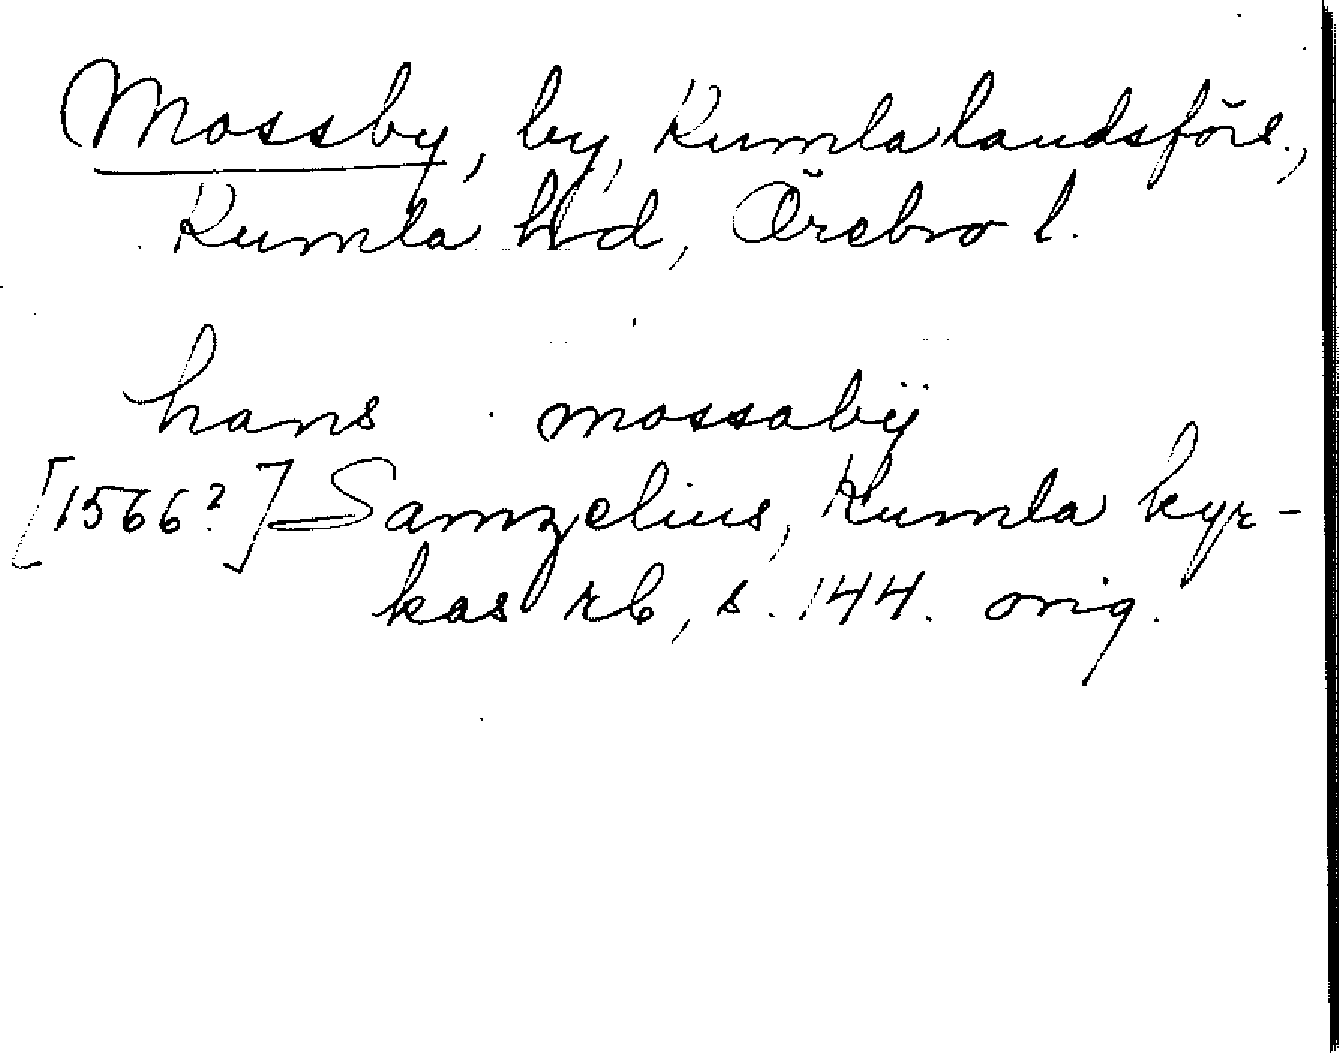 Mossby, by, Kumla landsförs.,
Kumla hd, Örebro l.
hans mossabÿ
[1566?] Samzelius, Kumla kyr-
kas rb, s. 144. orig.